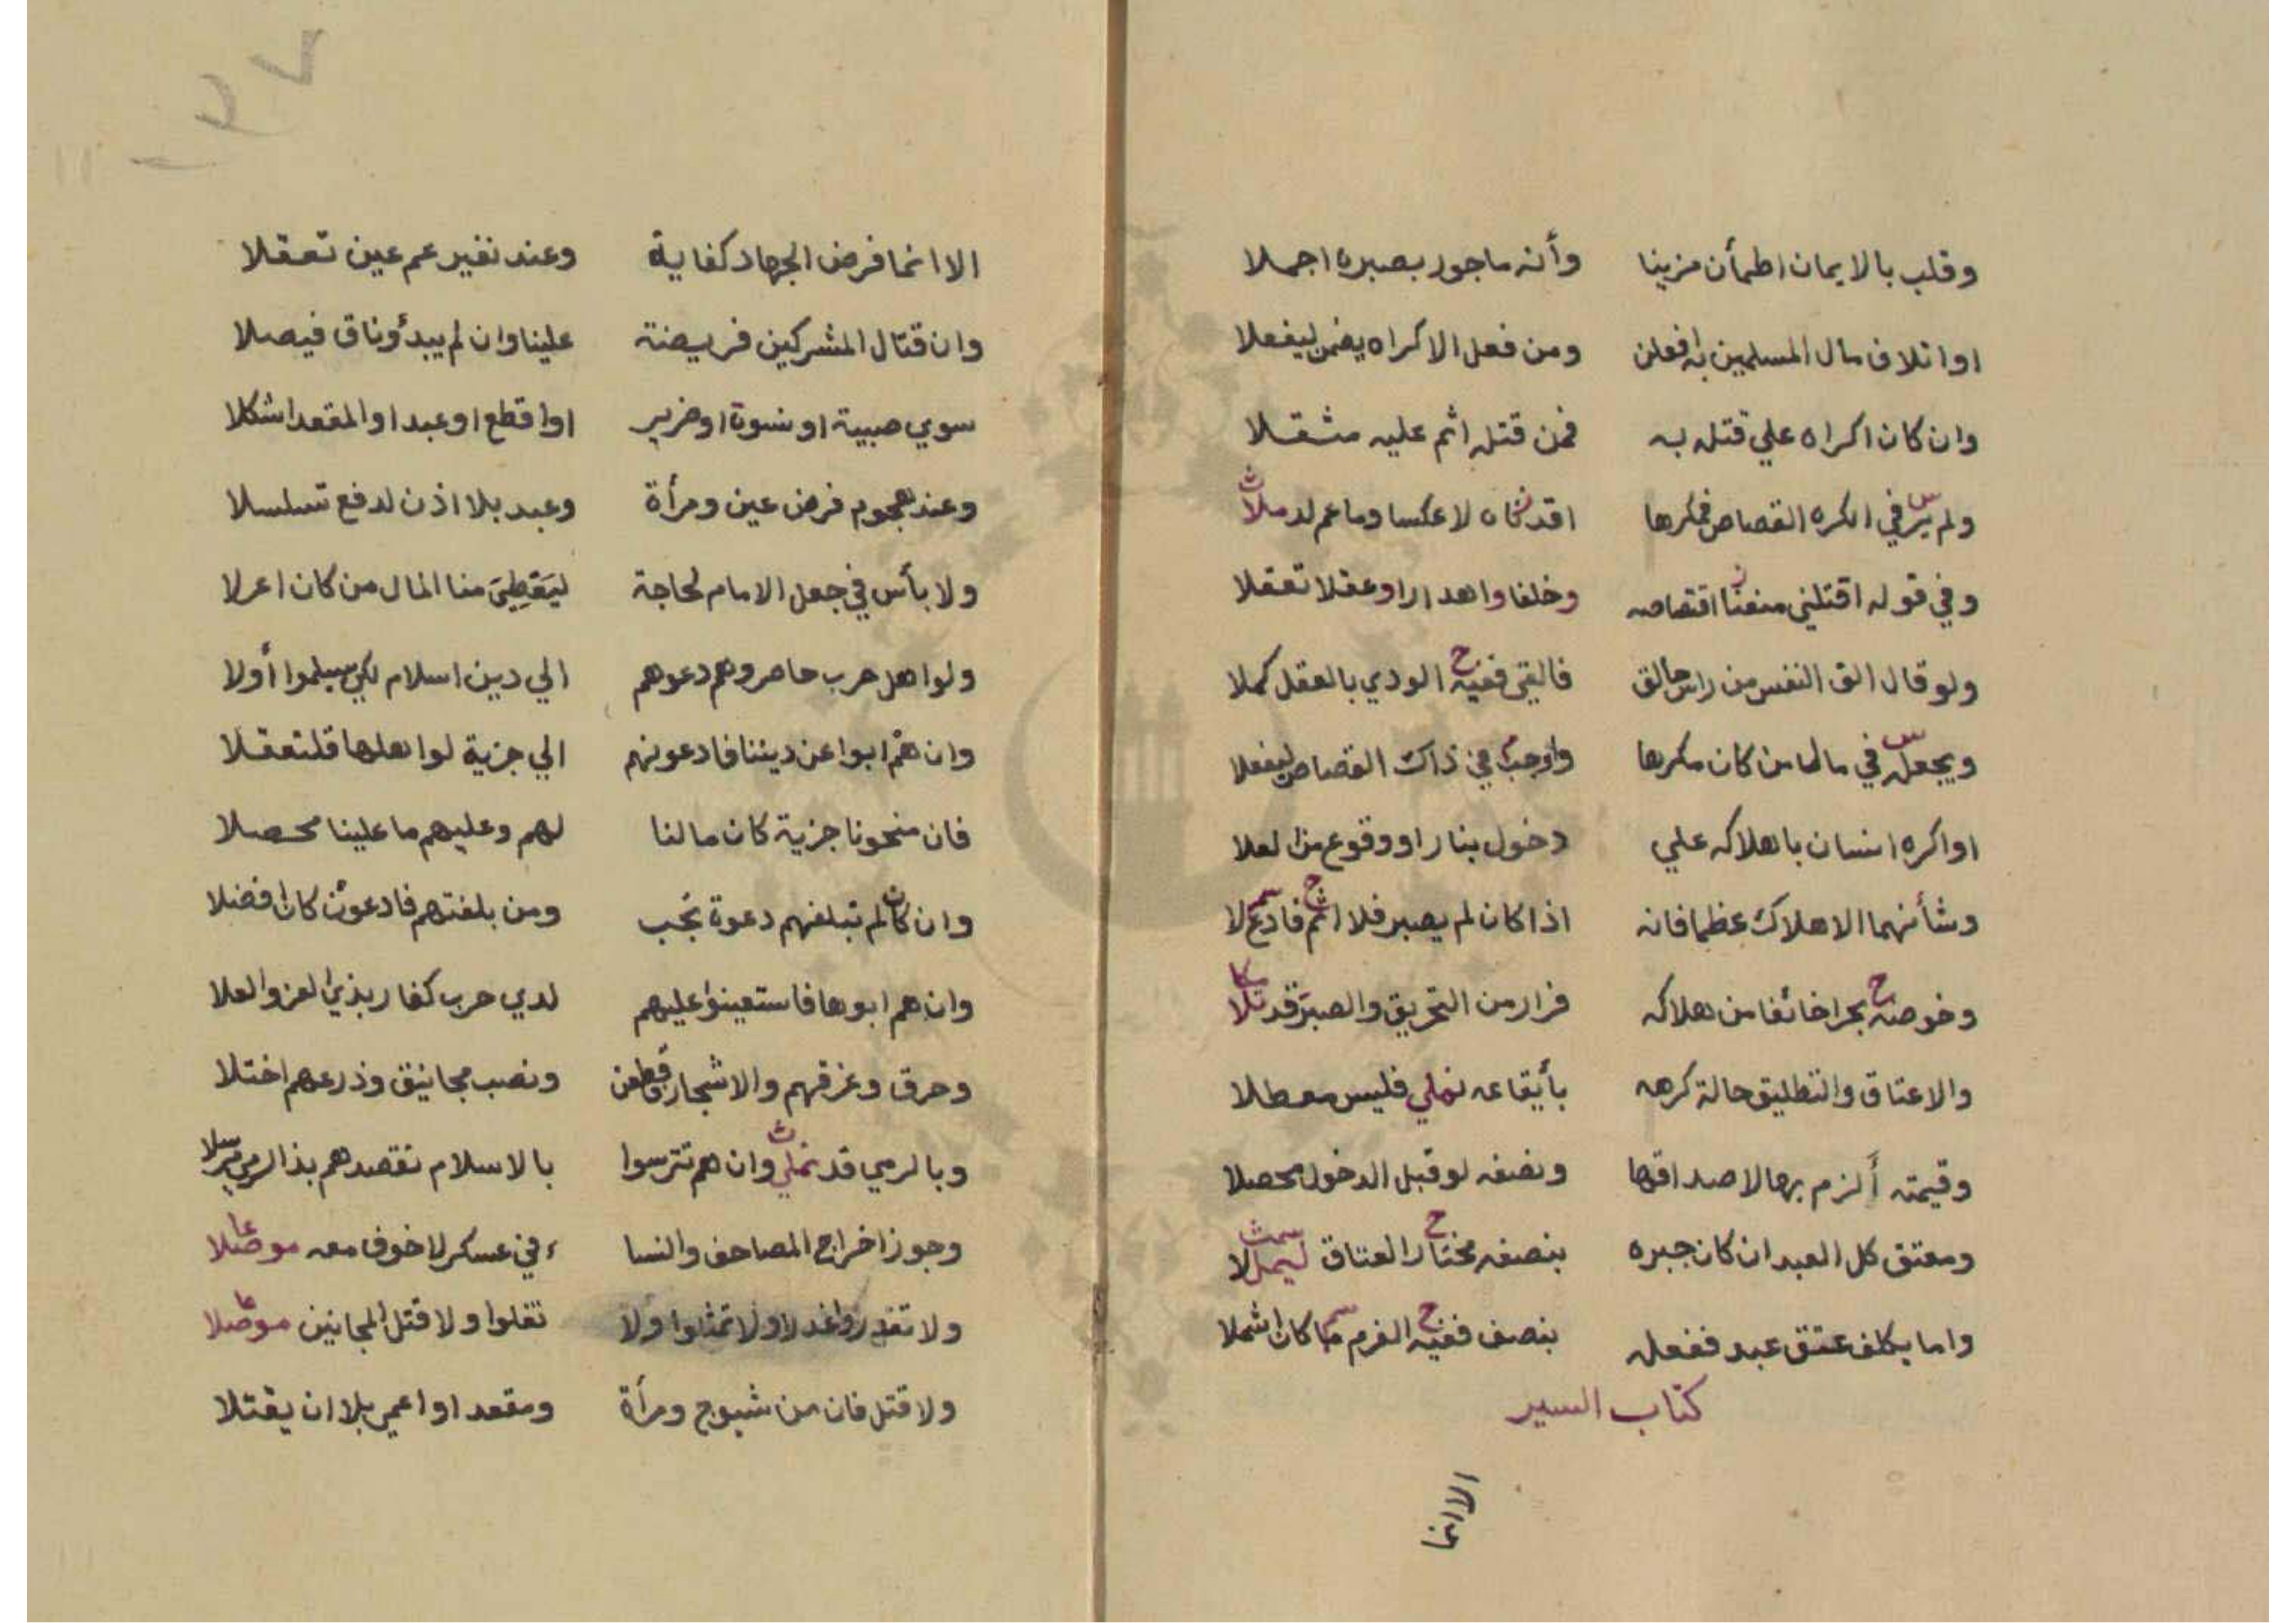 وقلب بالايمان اطمأن مزينا وأنه ماجور بصبره اجملا
اواتلاف مال المسلمين به افعلن ومن فعل الاكراه يضمن ليفعلا
وان كان اكراه علي قتله به فمن قتله اثم عليه مثقلا
ولم ير في المكره القصاص فمكرها اقدناه لا عكسا وما عم لد ملا
وفي قوله اقتلني منعنا اقتصاصه وخلفا واهدارا وعقلا تعقلا
ولو قال الق النفس من راس حالق فالقي ففيه الودي بالعقل كملا
ويجعل في مالها من كان مكرها واوجب في ذاك القصاص ليفعلا
او اكره انسان باهلاكه علي دخول بنار او وقوع من العلا
وشأنهما الاهلاك عظما فانه اذا كان لم يصبر فلا اثم فادع لا
وخوضه بحرا خائفا من هلاكه فرار من التحريق والصبر قد تلا
والاعتاق والتطليق حالة كرهه بأيقاعه نملي فليس معطلا
وقيمته ألزم بها لا صداقها ونصفه لو قبل الدخول محصلا
ومعتق كل العبد ان كان جبره بنصفه مختار العتاق ليمللا
واما يكلف عتق عبد ففعله بنصف ففيه الغرم ما كان اشملا
كتاب السير
الا انما
الا انما فرض الجهاد كفاية وعند نفير عم عين تعقلا
وان قتال المشركين فريضة علينا وان لم يبدؤنا ق فيصلا
سوي صبية او نسوة او ضرير او اقطع او عبد او المقعد اشكلا
وعند هجوم فرض عين ومرأة وعبد بلا اذن لدفع تسلسلا
ولا بأس في جعل الامام لحاجة ليقطي منا المال من كان اعزلا
ولو اهل حرب حاصروهم دعوهم الي دين اسلام لكي سيلموا أولا
وان هم ابوا عن ديننا فادعونهم الي جزية لو اهلها قلتعقلا
فان منحونا جزية كان مالنا لهم وعليهم ما علينا محصلا
وان كان لم تبلغهم دعوة تجب ومن بلغتهم فادعون كان افضلا
وان هم ابوها فاستعينوا عليهم لدي حرب كفار بذي العز والعلا
وحرق وغرقهم والاشجار قطعن ونصب مجانيق وذرعهم اختلا
وبالرمي قد نملي وان هم تترسوا بالاسلام نقصدهم بذا الرمي مرسلا
وجوز اخراج المصاحف والنسا ء في عسكر لا خوف معه موصلا
ولا تغدروا غدرا ولا تمثلوا ولا تغلوا ولا قتل المجانين موصلا
ولا قتل فان من شيوخ ومرأة ومقعد او اعمي بلا ان يقتلا